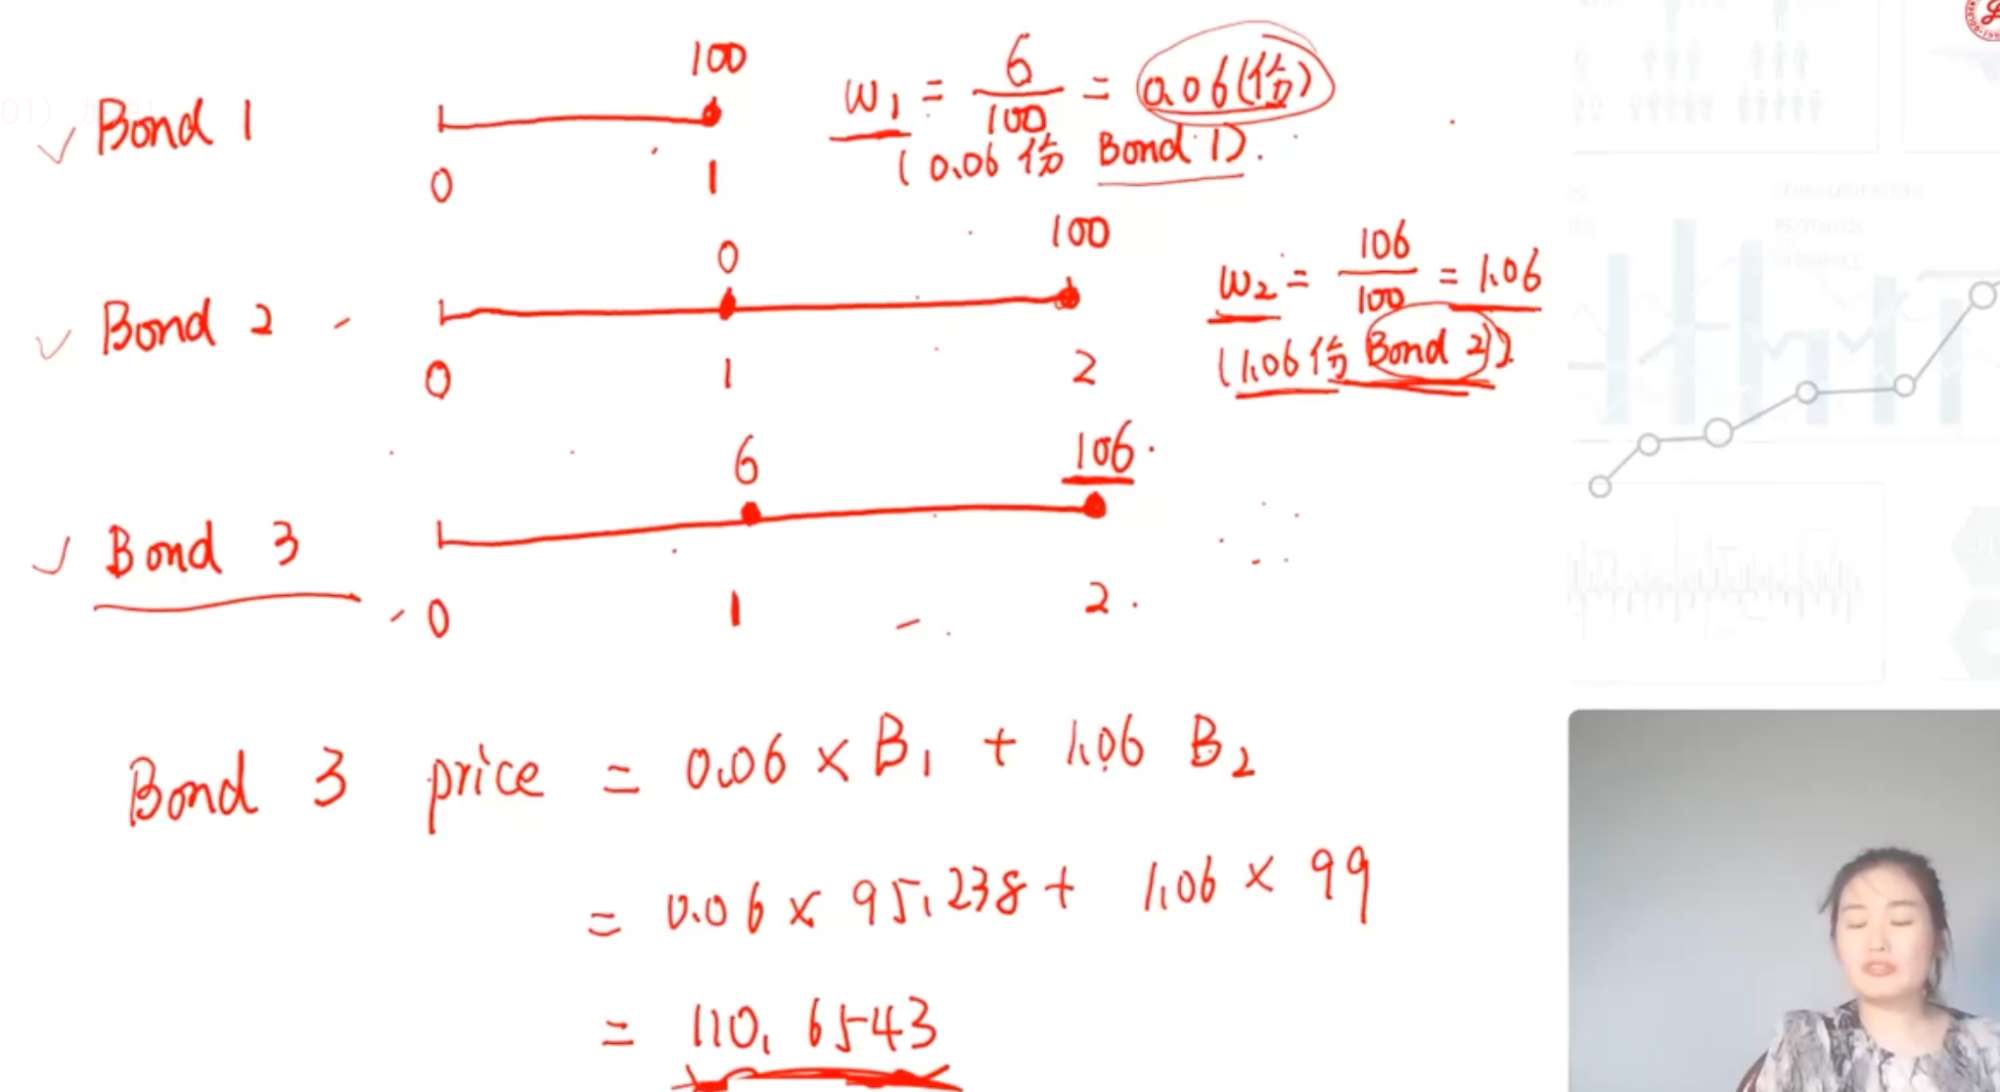 Bond 1
100
0 1
w₁ = 6/100 = 0.06(份)
(0.06份 Bond 1).
Bond 2
0 100
0 1 2
w₂ = 106/100 = 1.06
(1.06份 Bond 2).
Bond 3
6 106
0 1 2
Bond 3 price = 0.06 × B₁ + 1.06 B₂
= 0.06 × 95.238 + 1.06 × 99
= 110.6543